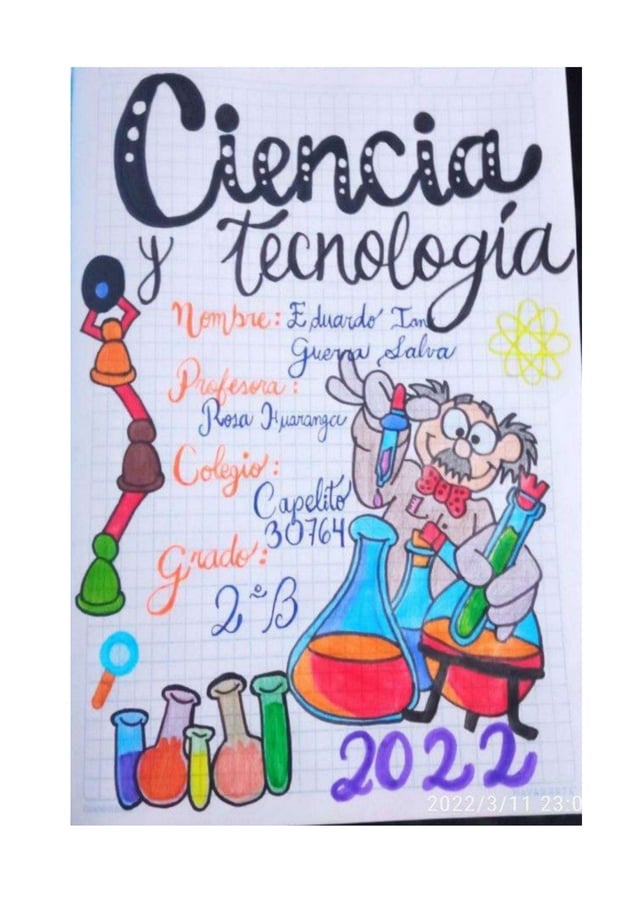 Ciencia
y tecnología
Nombre: Eduardo Ian
Guerra Salva
Profesora:
Rosa Huaranga
Colegio:
Capelito
30764
Grado:
2° B
2022
2022/3/11 23:0